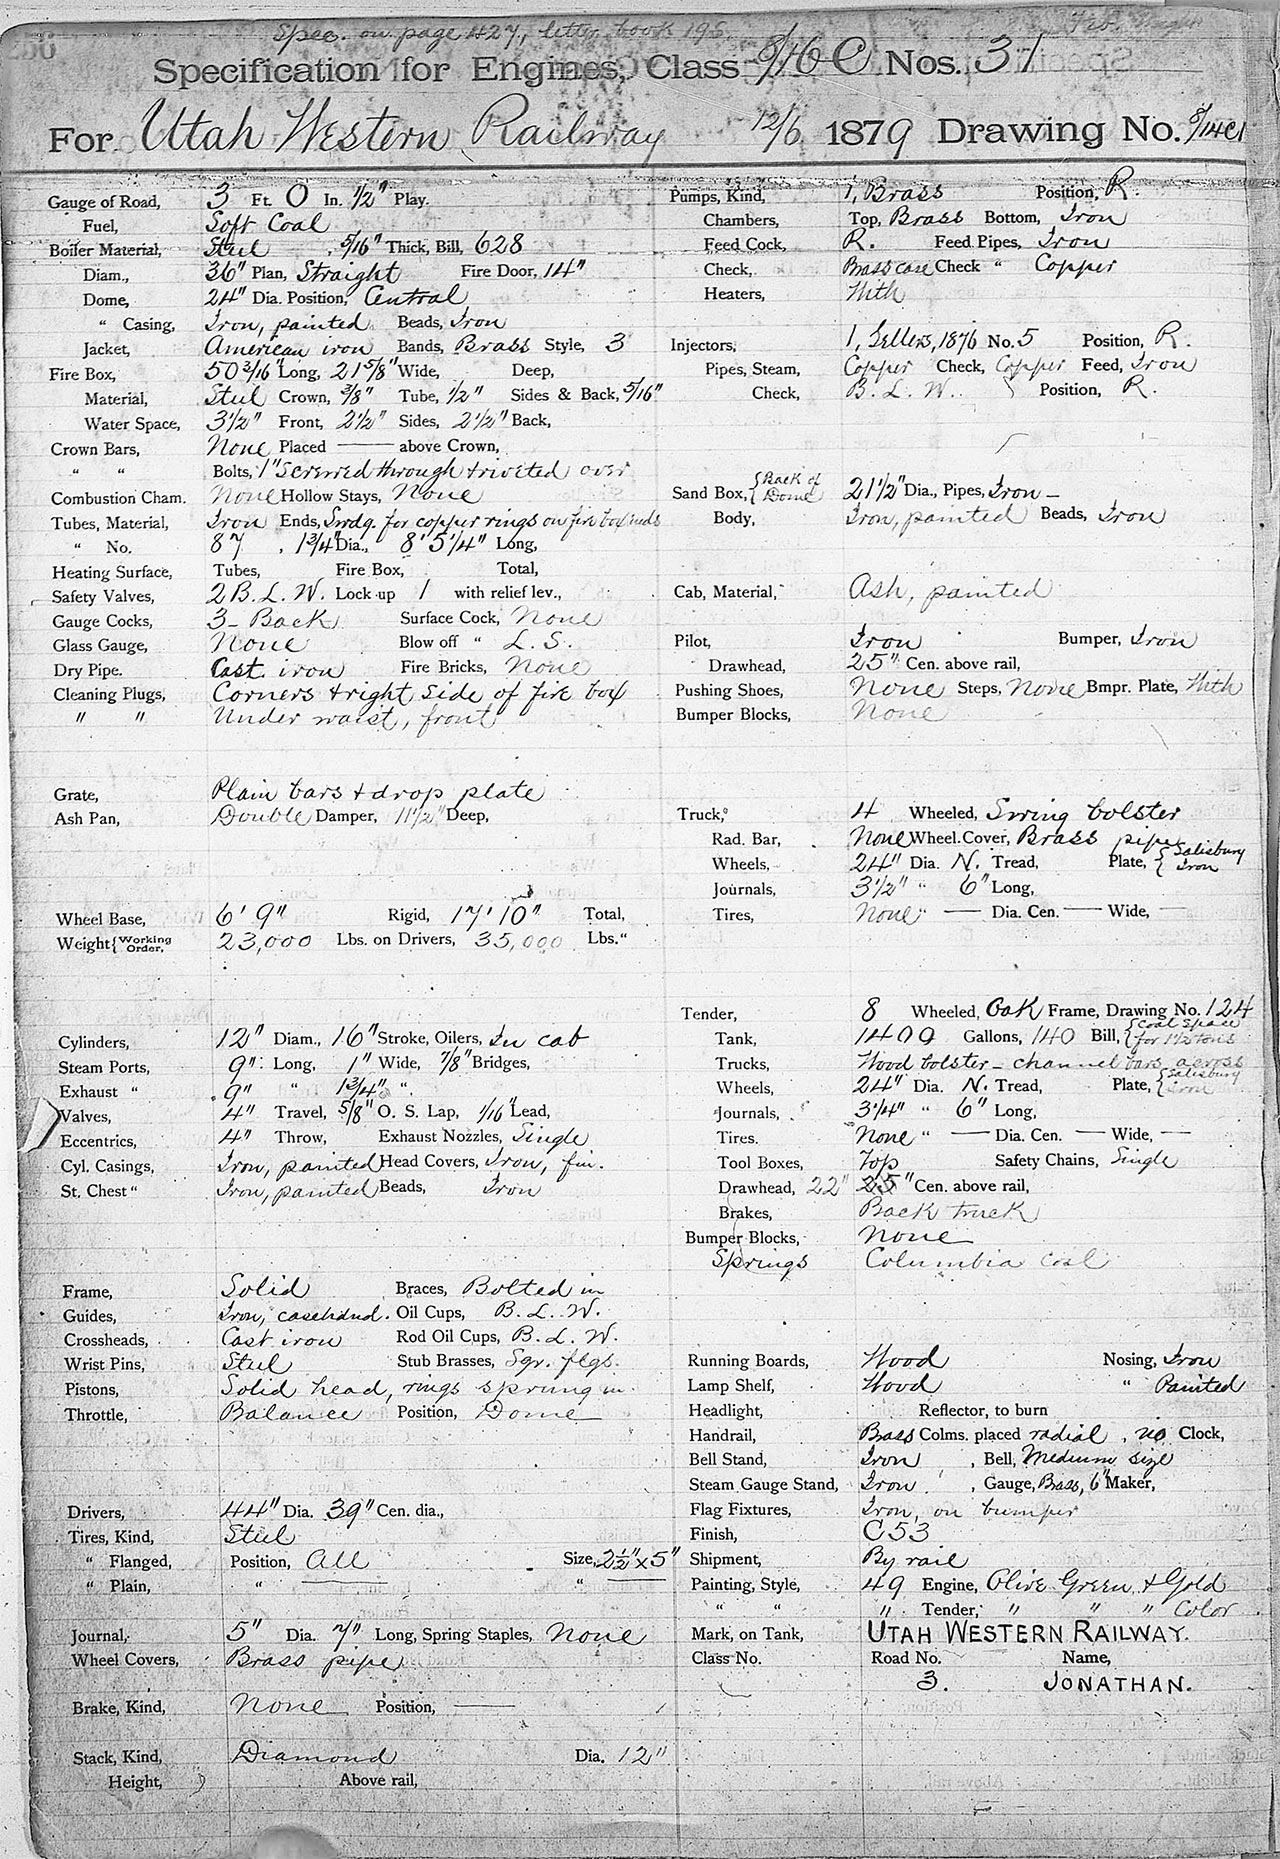 Spec. on page 427, letter book 196.
Specification for Engines, Class 8/16 C Nos. 31
For Utah Western Railway 12/6 1879 Drawing No. 8/14C1
Gauge of Road, 3 Ft. 0 In. 1/2" Play.
Fuel, Soft Coal
Boiler Material, Steel, 5/16" Thick, Bill, 628
Diam., 36" Plan, Straight Fire Door, 14"
Dome, 24" Dia. Position, Central
" Casing, Iron, painted Beads, Iron
Jacket, American iron Bands, Brass Style, 3
Fire Box, 50 3/16" Long, 21 5/8" Wide, Deep,
Material, Steel Crown, 3/8" Tube, 1/2" Sides & Back, 5/16"
Water Space, 3 1/2" Front, 2 1/2" Sides, 2 1/2" Back,
Crown Bars, None Placed — above Crown,
" " Bolts, 1" Screwed through & riveted over
Combustion Cham. None Hollow Stays, None
Tubes, Material, Iron Ends, Swdg. for copper rings on fire box ends
" No. 87, 1 3/4" Dia., 8' 5 1/4" Long,
Heating Surface, Tubes, Fire Box, Total,
Safety Valves, 2 B. L. W. Lock up 1 with relief lev.,
Gauge Cocks, 3 - Back Surface Cock, None
Glass Gauge, None Blow off " L. S.
Dry Pipe. Cast iron Fire Bricks, None
Cleaning Plugs, Corners & right side of fire box
" " Under waist, front
Grate, Plain bars & drop plate
Ash Pan, Double Damper, 11 1/2" Deep,
Wheel Base, 6' 9" Rigid, 17' 10" Total,
Weight { Working Order, 23,000 Lbs. on Drivers, 35,000 Lbs. "
Cylinders, 12" Diam., 16" Stroke, Oilers, In cab
Steam Ports, 9" Long, 1" Wide, 7/8" Bridges,
Exhaust " 9" " 1 3/4" "
Valves, 4" Travel, 5/8" O. S. Lap, 1/16" Lead,
Eccentrics, 4" Throw, Exhaust Nozzles, Single
Cyl. Casings, Iron, painted Head Covers, Iron, fin.
St. Chest " Iron, painted Beads, Iron
Frame, Solid Braces, Bolted in
Guides, Iron, casehand. Oil Cups, B. L. W.
Crossheads, Cast iron Rod Oil Cups, B. L. W.
Wrist Pins, Steel Stub Brasses, Sqr. flgs.
Pistons, Solid head, rings sprung in.
Throttle, Balance Position, Dome
Drivers, 44" Dia. 39" Cen. dia.,
Tires, Kind, Steel
" Flanged, Position, All Size, 2 1/2" x 5"
" Plain, " — " —
Journal, 5" Dia. 7" Long, Spring Staples, None
Wheel Covers, Brass pipe
Brake, Kind, None Position, —
Stack, Kind, Diamond Dia. 12"
Height, Above rail,
Pumps, Kind, 1, Brass Position, R.
Chambers, Top, Brass Bottom, Iron
Feed Cock, R. Feed Pipes, Iron
Check, Brass case Check " Copper
Heaters, With
Injectors, 1, Sellers, 1876 No. 5 Position, R.
Pipes, Steam, Copper Check, Copper Feed, Iron
Check, B. L. W. Position, R.
Sand Box, { Back of Dome } 21 1/2" Dia., Pipes, Iron -
Body, Iron, painted Beads, Iron
Cab, Material, Ash, painted
Pilot, Iron Bumper, Iron
Drawhead, 25" Cen. above rail,
Pushing Shoes, None Steps, None Bmpr. Plate, With
Bumper Blocks, None
Truck, 4 Wheeled, Swing bolster
Rad. Bar, None Wheel. Cover, Brass pipe
Wheels, 24" Dia. N. Tread, Plate, { Salisbury Iron
Journals, 3 1/2" " 6" Long,
Tires, None " — Dia. Cen. — Wide, —
Tender, 8 Wheeled, Oak Frame, Drawing No. 124
Tank, 1400 Gallons, 140 Bill, { Coal Space for 1 1/2 tons
Trucks, Wood bolster - channel bars across
Wheels, 24" Dia. N. Tread, Plate, { Salisbury iron
Journals, 3 1/4" " 6" Long,
Tires. None " — Dia. Cen. — Wide, —
Tool Boxes, Top Safety Chains, Single
Drawhead, 22" 25" Cen. above rail,
Brakes, Back truck
Bumper Blocks, None
Springs Columbia coil
Running Boards, Wood Nosing, Iron
Lamp Shelf, Wood " Painted
Headlight, Reflector, to burn
Handrail, Brass Colms. placed radial, no Clock,
Bell Stand, Iron, Bell, Medium size
Steam Gauge Stand, Iron, Gauge, Brass, 6" Maker,
Flag Fixtures, Iron, on bumper
Finish, C 53
Shipment, By rail
Painting, Style, 49 Engine, Olive Green & Gold
" " " Tender, " " " Color
Mark, on Tank, UTAH WESTERN RAILWAY.
Class No. Road No. Name,
3. JONATHAN.